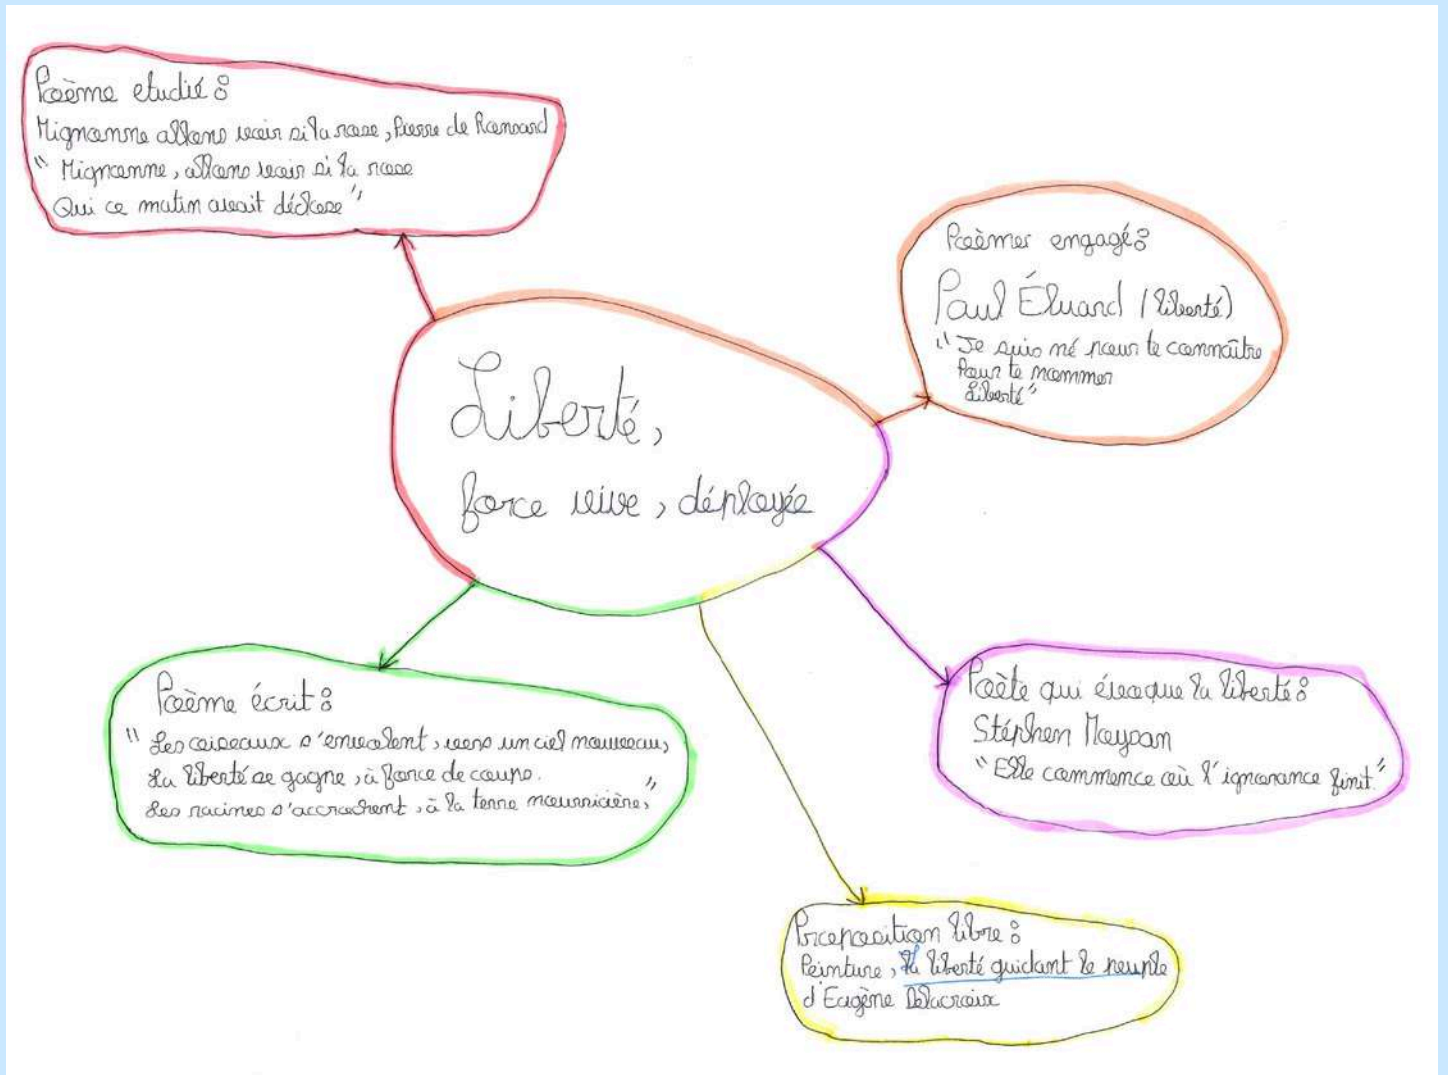 Poème etudié :
Mignonne allons voir si la rose, Pierre de Ronsard
" Mignonne, allons voir si la rose
Qui ce matin avait déclose "
Poèmes engagé :
Paul Éluard (liberté)
" Je suis né pour te connaître
Pour te nommer
Liberté "
Liberté,
force vive, déployée
Poème écrit :
" Les oiseaux s'envolent, vers un ciel nouveau,
La liberté se gagne, à force de coups.
Les racines s'accrochent, à la terre nourricière, "
Poète qui évoque la liberté :
Stéphen Moysan
" Elle commence où l'ignorance finit. "
Proposition libre :
Peinture, la liberté guidant le peuple
d'Eugène Delacroix